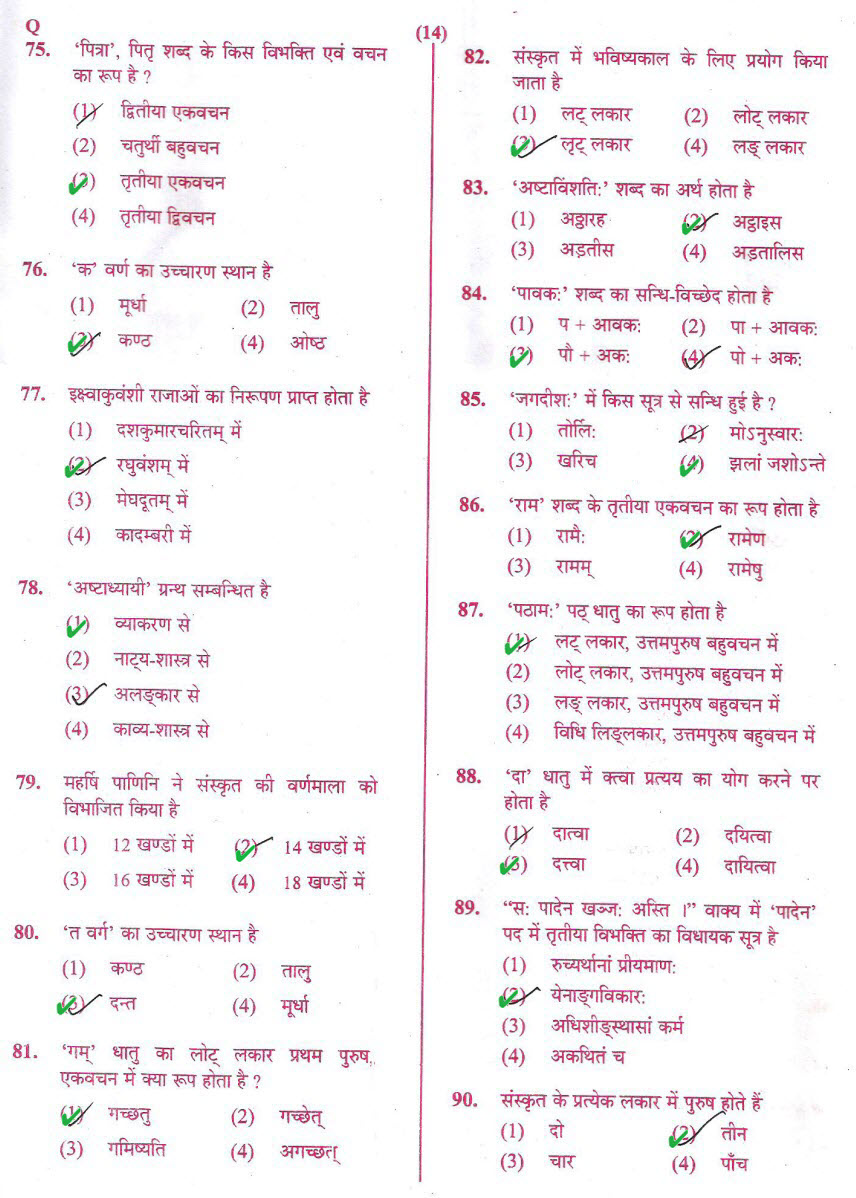 Q
(14)
75. ‘पित्रा’, पितृ शब्द के किस विभक्ति एवं वचन
का रूप है ?
(1) द्वितीया एकवचन
(2) चतुर्थी बहुवचन
(3) तृतीया एकवचन
(4) तृतीया द्विवचन
76. ‘क’ वर्ण का उच्चारण स्थान है
(1) मूर्धा (2) तालु
(3) कण्ठ (4) ओष्ठ
77. इक्ष्वाकुवंशी राजाओं का निरूपण प्राप्त होता है
(1) दशकुमारचरितम् में
(2) रघुवंशम् में
(3) मेघदूतम् में
(4) कादम्बरी में
78. ‘अष्टाध्यायी’ ग्रन्थ सम्बन्धित है
(1) व्याकरण से
(2) नाट्य-शास्त्र से
(3) अलङ्कार से
(4) काव्य-शास्त्र से
79. महर्षि पाणिनि ने संस्कृत की वर्णमाला को
विभाजित किया है
(1) 12 खण्डों में (2) 14 खण्डों में
(3) 16 खण्डों में (4) 18 खण्डों में
80. ‘त वर्ग’ का उच्चारण स्थान है
(1) कण्ठ (2) तालु
(3) दन्त (4) मूर्धा
81. ‘गम्’ धातु का लोट् लकार प्रथम पुरुष,
एकवचन में क्या रूप होता है ?
(1) गच्छतु (2) गच्छेत्
(3) गमिष्यति (4) अगच्छत्
82. संस्कृत में भविष्यकाल के लिए प्रयोग किया
जाता है
(1) लट् लकार (2) लोट् लकार
(3) लृट् लकार (4) लङ् लकार
83. ‘अष्टाविंशतिः’ शब्द का अर्थ होता है
(1) अठ्ठारह (2) अट्ठाइस
(3) अड़तीस (4) अड़तालिस
84. ‘पावकः’ शब्द का सन्धि-विच्छेद होता है
(1) प + आवकः (2) पा + आवकः
(3) पौ + अकः (4) पो + अकः
85. ‘जगदीशः’ में किस सूत्र से सन्धि हुई है ?
(1) तोर्लिः (2) मोऽनुस्वारः
(3) खरिच (4) झलां जशोऽन्ते
86. ‘राम’ शब्द के तृतीया एकवचन का रूप होता है
(1) रामैः (2) रामेण
(3) रामम् (4) रामेषु
87. ‘पठामः’ पठ् धातु का रूप होता है
(1) लट् लकार, उत्तमपुरुष बहुवचन में
(2) लोट् लकार, उत्तमपुरुष बहुवचन में
(3) लङ् लकार, उत्तमपुरुष बहुवचन में
(4) विधि लिङ्लकार, उत्तमपुरुष बहुवचन में
88. ‘दा’ धातु में क्त्वा प्रत्यय का योग करने पर
होता है
(1) दात्वा (2) दयित्वा
(3) दत्त्वा (4) दायित्वा
89. “सः पादेन खञ्जः अस्ति ।” वाक्य में ‘पादेन’
पद में तृतीया विभक्ति का विधायक सूत्र है
(1) रुच्यर्थानां प्रीयमाणः
(2) येनाङ्गविकारः
(3) अधिशीङ्स्थासां कर्म
(4) अकथितं च
90. संस्कृत के प्रत्येक लकार में पुरुष होते हैं
(1) दो (2) तीन
(3) चार (4) पाँच